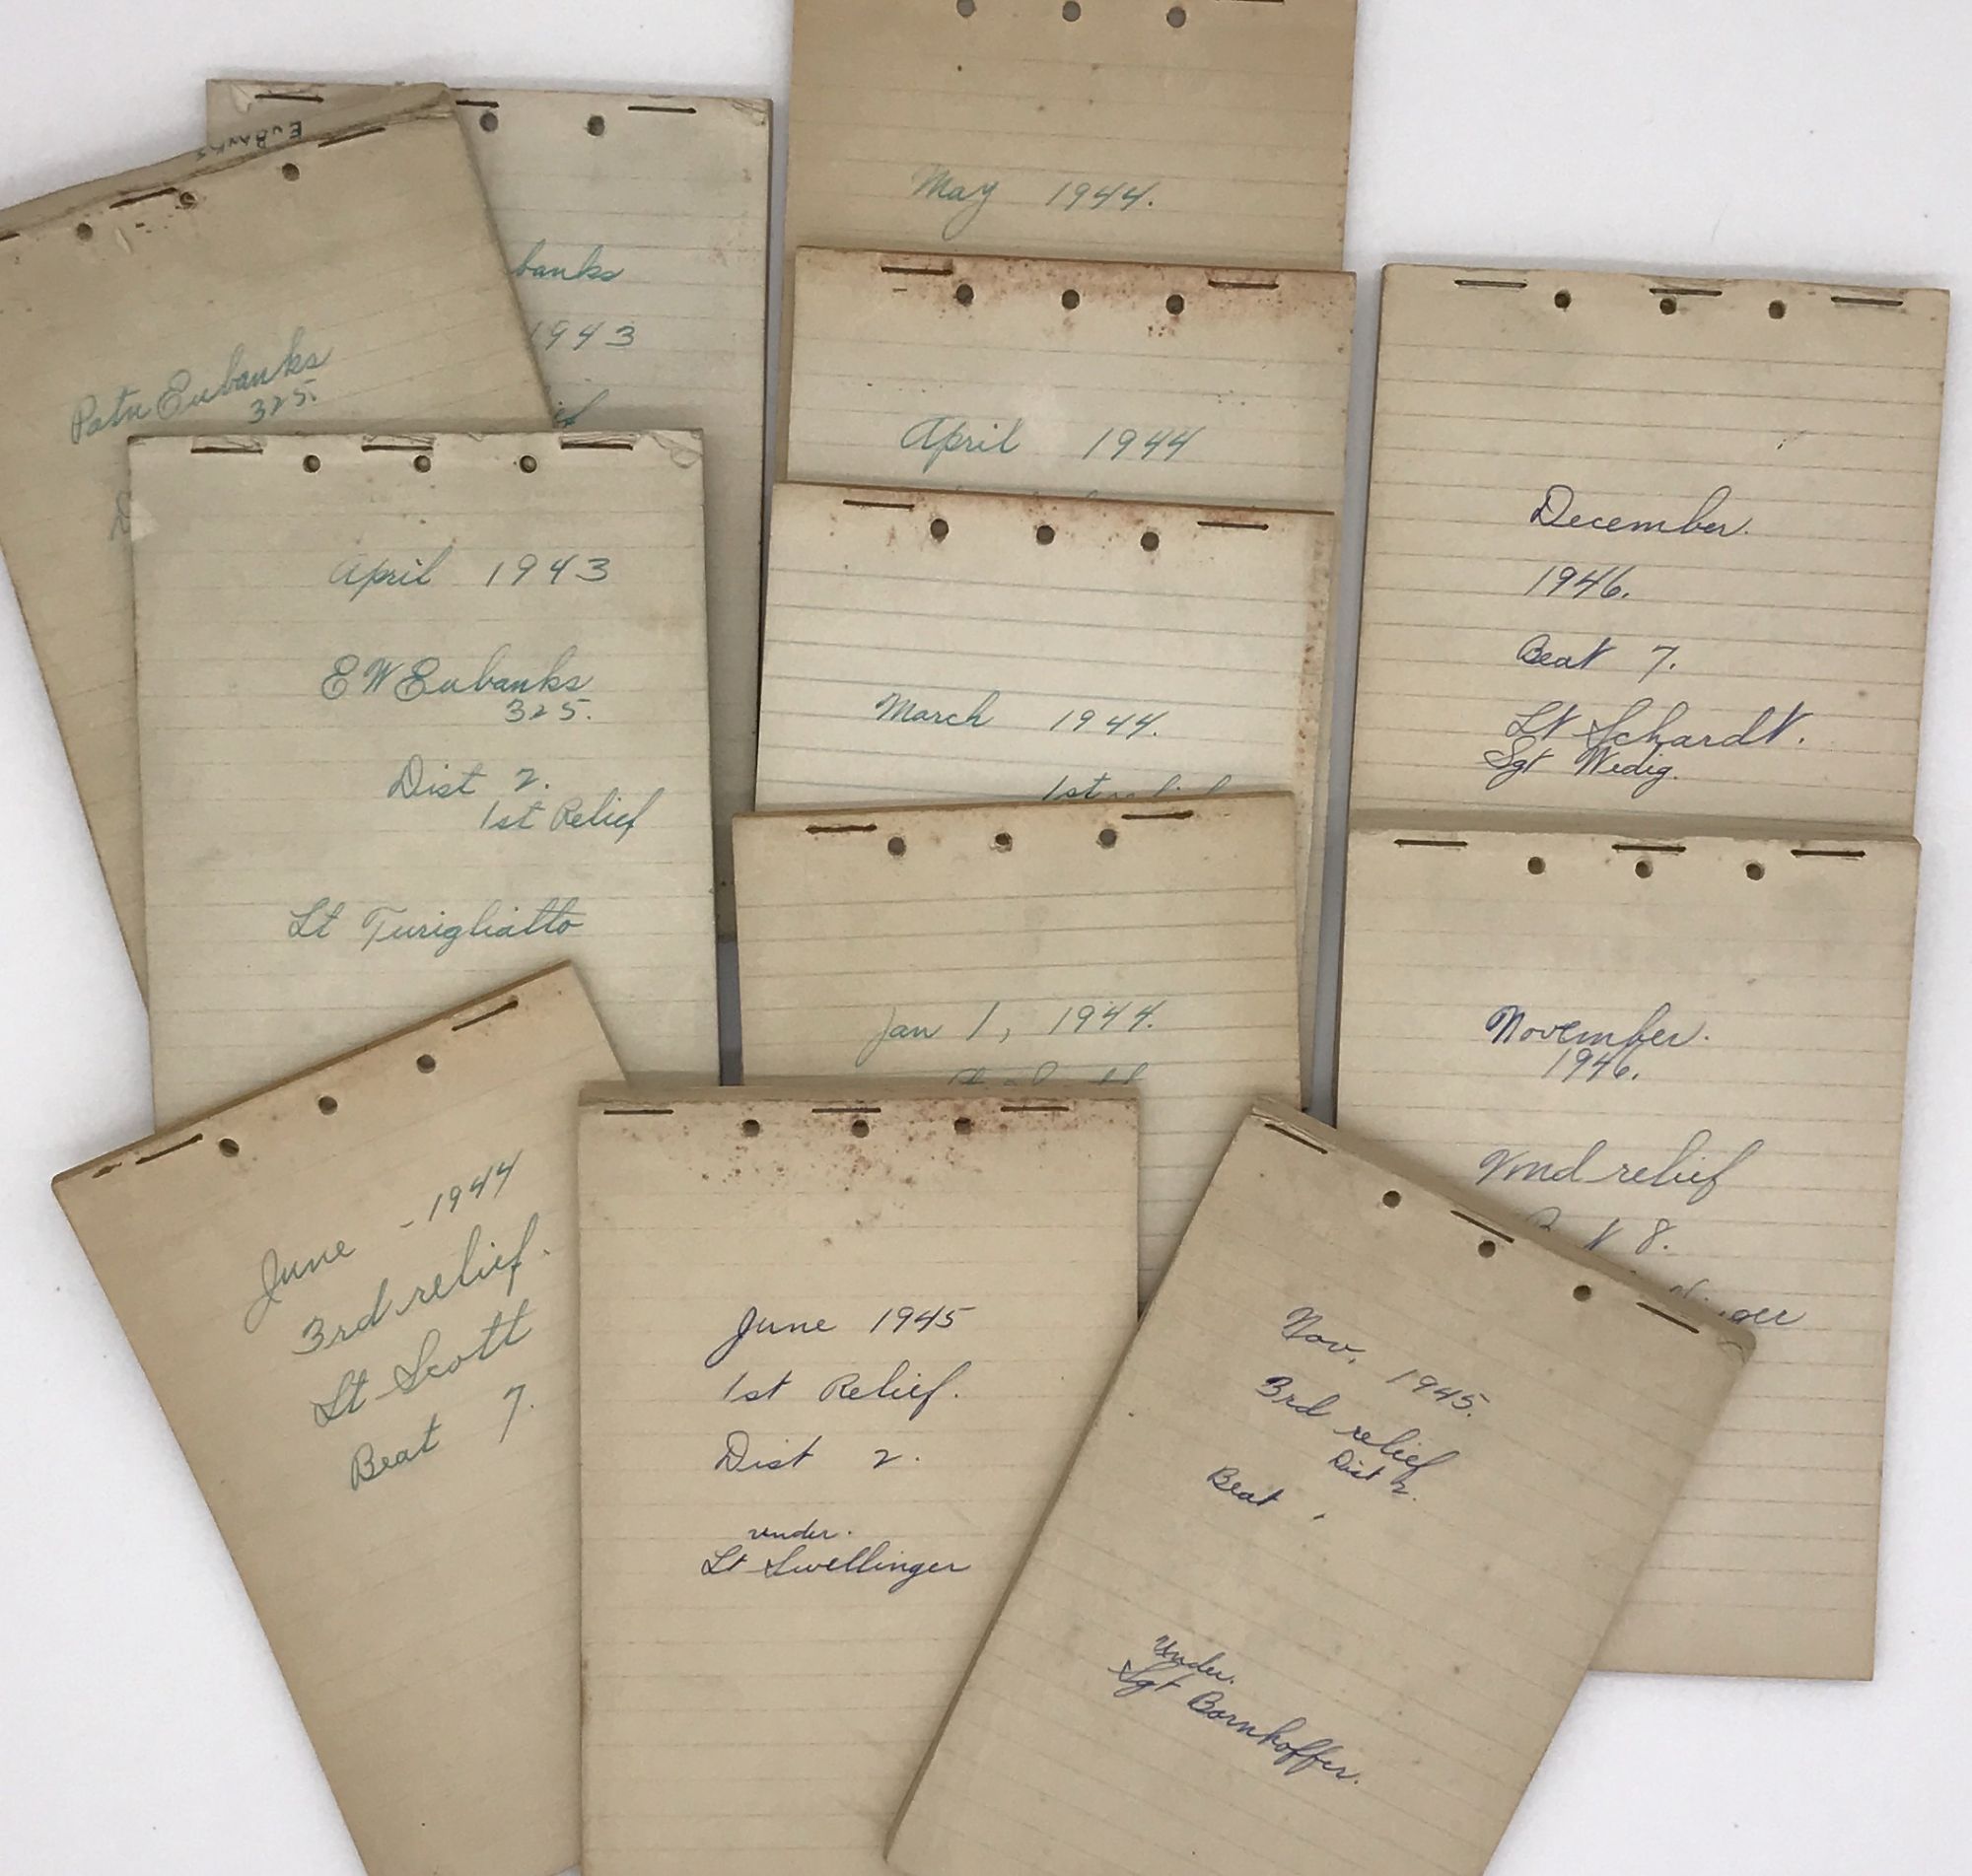 EUBANKS
Patn Eubanks
325.
banks
1943
April 1943
E W Eubanks
325.
Dist 2.
1st Relief
Lt Turigliatto
May 1944.
April 1944
March 1944.
1st
Jan 1, 1944.
December.
1946.
Beat 7.
Lt Schardt.
Sgt Wedig.
November.
1946.
2nd relief
8.
ger
June - 1944
3rd relief.
Lt Scott
Beat 7.
June 1945
1st Relief.
Dist 2.
under.
Lt Swellinger
Nov. 1945.
3rd relief
Dist 2.
Beat
Under.
Sgt Bornhoffer.